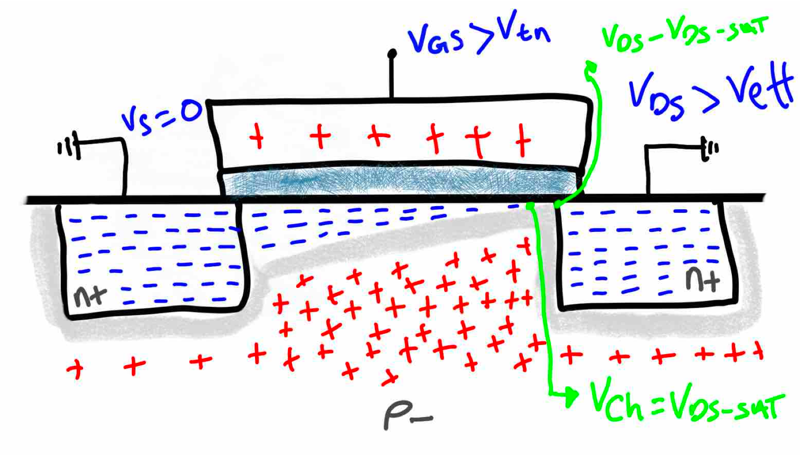 VGS > Vtn
VDS - VDS-sat
Vs = 0
VDS > Veff
n+
n+
VCh = VDS-sat
P-